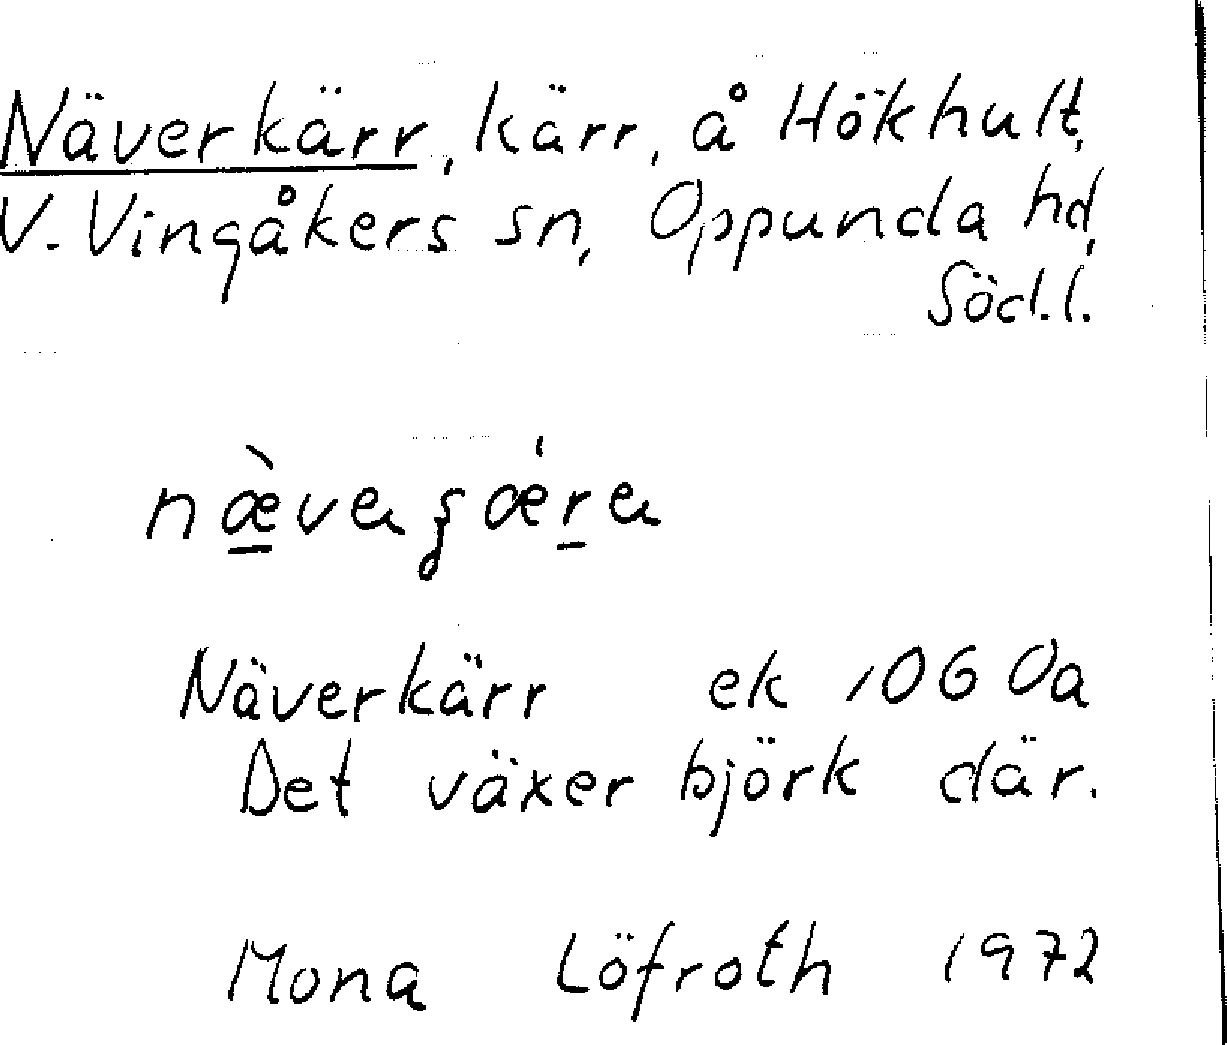 Näverkärr, kärr, å Hökhult,
V. Vingåkers sn, Oppunda hd,
Söd.l.
Näverkärr ek 10G 0a
Det växer björk där.
Mona Löfroth 1972